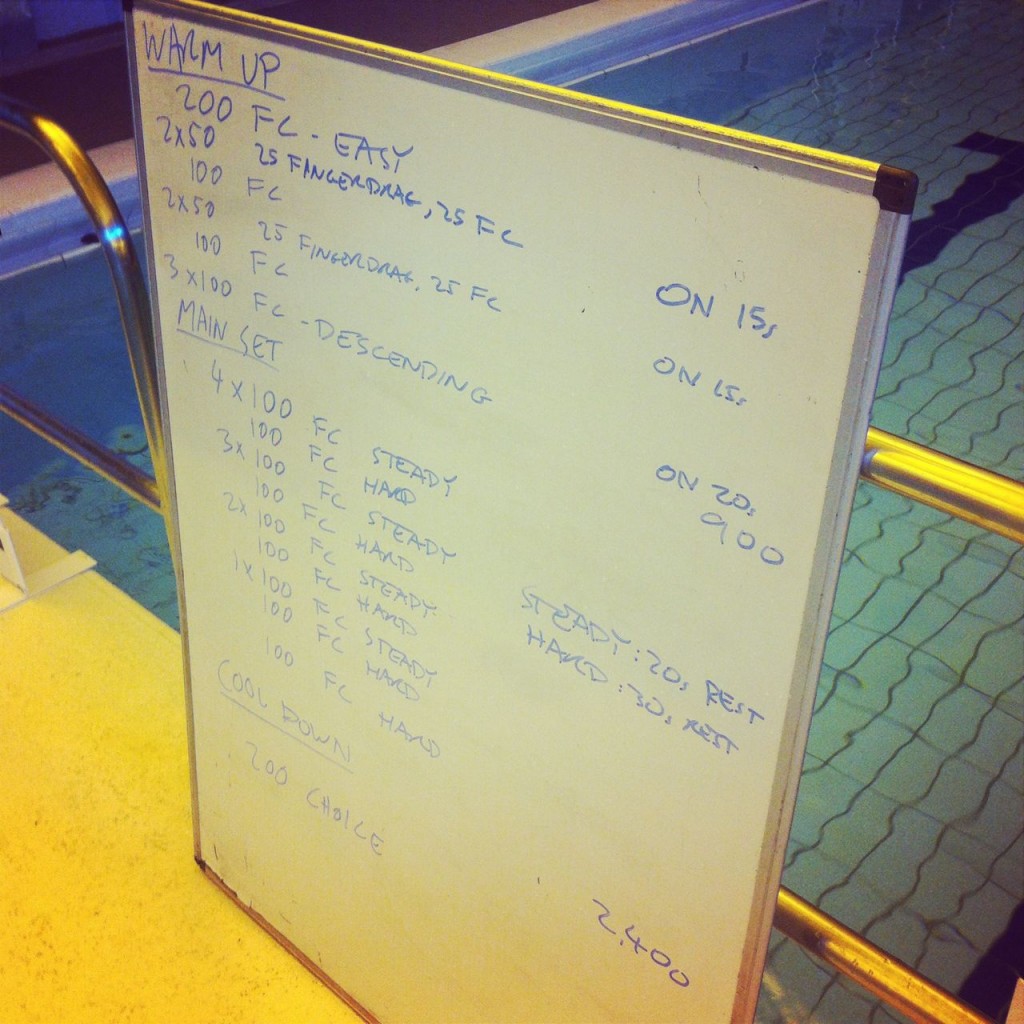 WARM UP
200 FC - EASY
2x50 25 FINGERDRAG, 25 FC ON 15s
100 FC
2x50 25 FINGERDRAG, 25 FC ON 15s
100 FC
3x100 FC - DESCENDING ON 20s
900
MAIN SET
4x100 FC STEADY
100 FC HARD
3x100 FC STEADY STEADY: 20s REST
100 FC HARD HARD: 30s REST
2x100 FC STEADY
100 FC HARD
1x100 FC STEADY
100 FC HARD
100 FC HARD
COOL DOWN
200 CHOICE
2,400